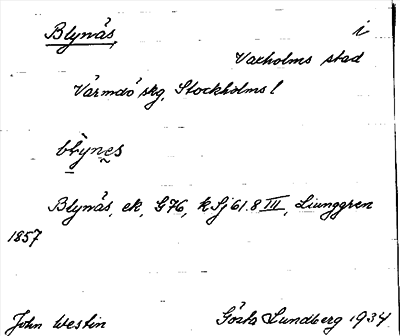 Blynäs, i
Vaxholms stad
Värmdö skg, Stockholms l
blynes
Blynäs, ek, G76, k Sj 61.8 III, Liunggren
1857
John Westin Gösta Lundberg 1934